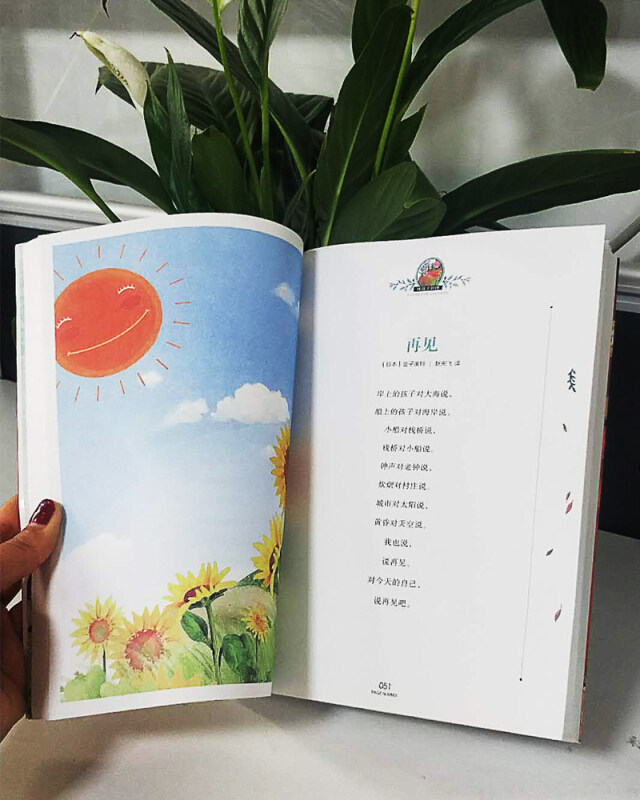 再见
岸上的孩子对大海说,
船上的孩子对海岸说。
小船对栈桥说,
栈桥对小船说。
钟声对老钟说,
炊烟对村庄说。
城市对太阳说,
黄昏对天空说。
我也说,
说再见。
对今天的自己,
说再见吧。
051